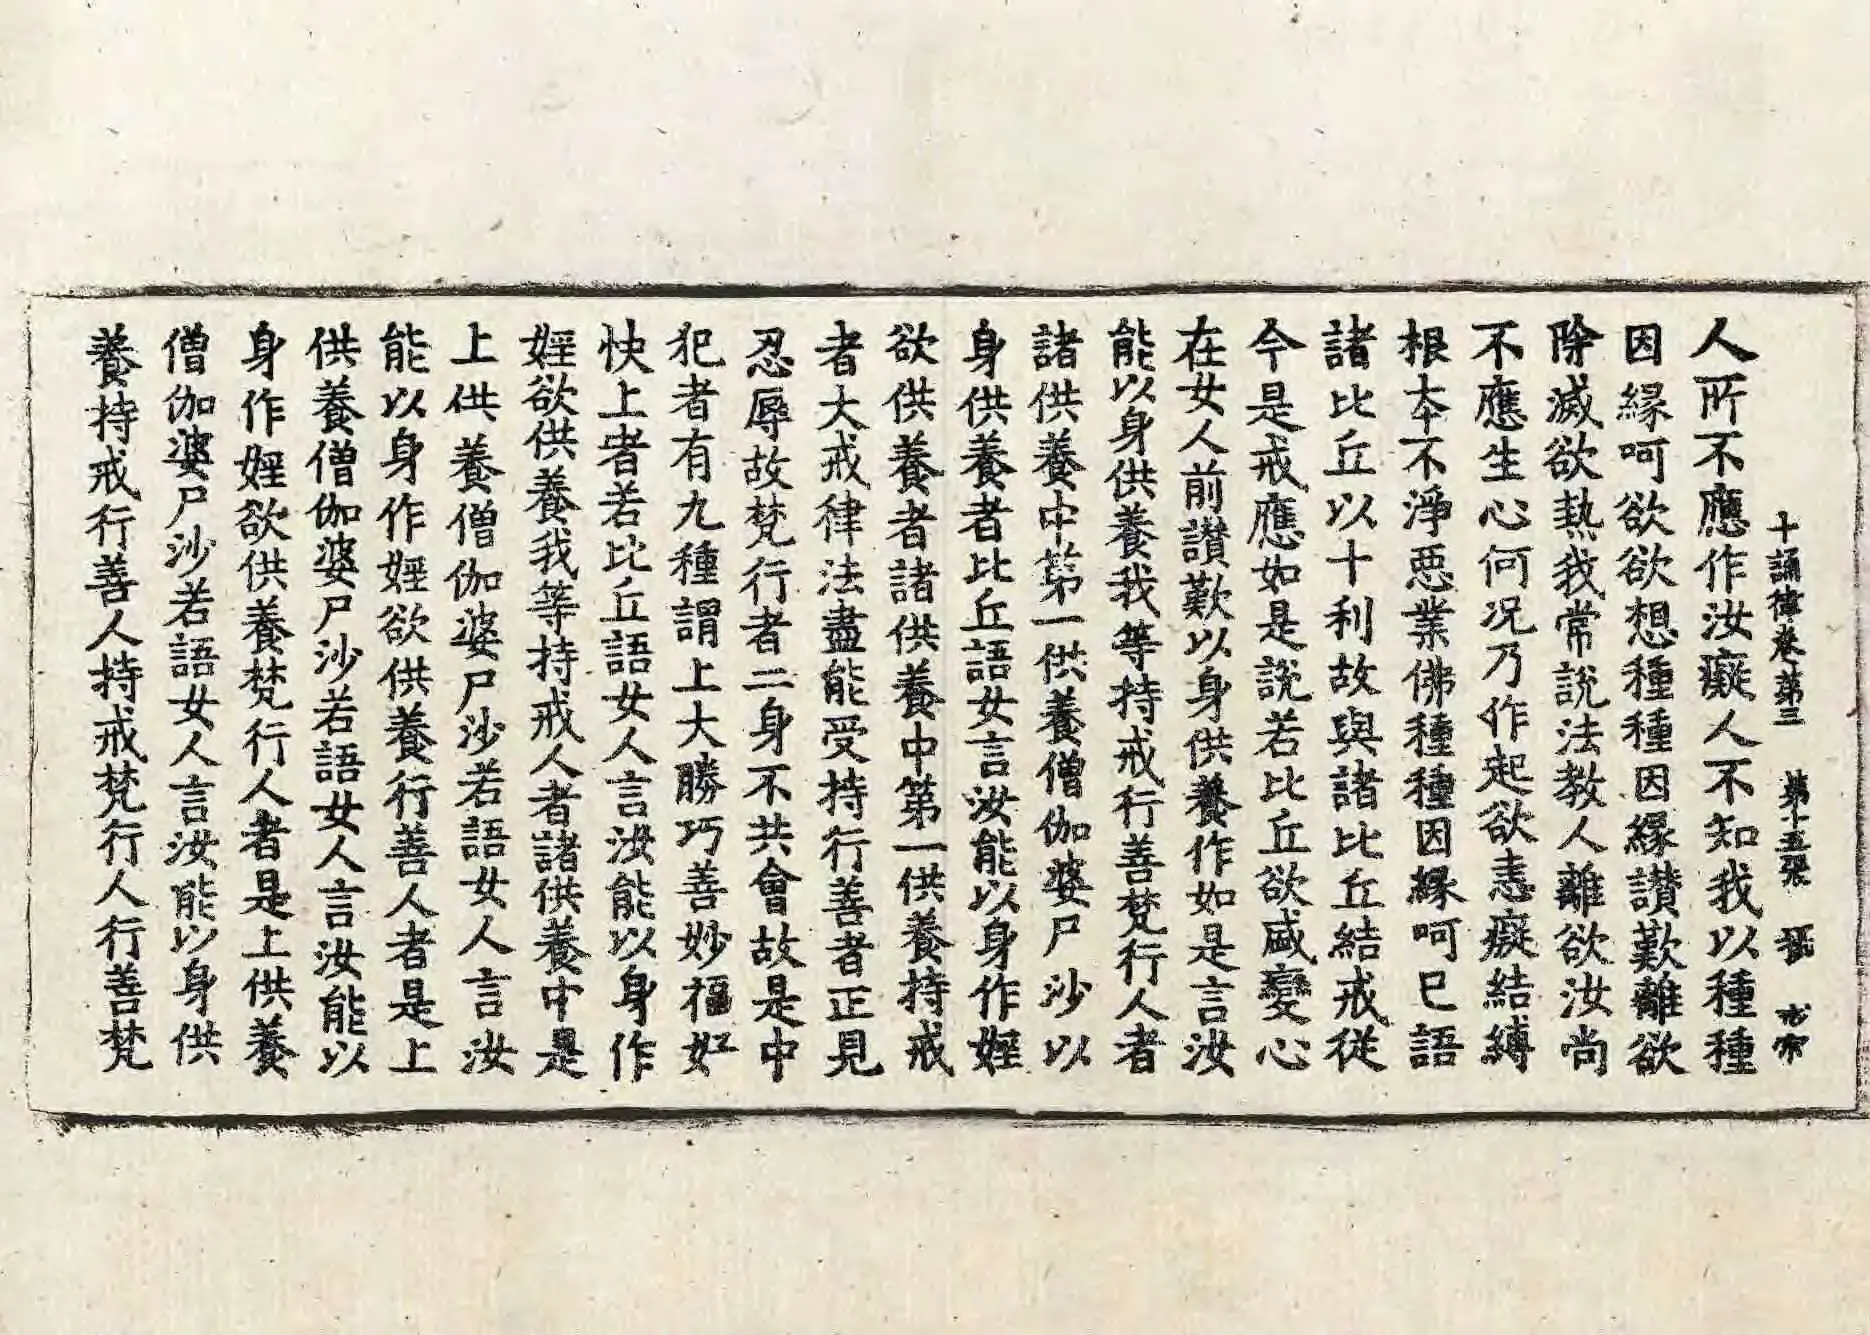 十誦律卷第三 第十五張 號
人所不應作汝癡人不知我以種種
因緣呵欲欲想種種因緣讃歎離欲
除滅欲熱我常說法教人離欲汝尚
不應生心何況乃作起欲恚癡結縛
根本不淨惡業佛種種因緣呵已語
諸比丘以十利故與諸比丘結戒從
今是戒應如是說若比丘欲盛變心
在女人前讃歎以身供養作如是言汝
能以身供養我等持戒行善梵行人者
諸供養中第一供養僧伽婆尸沙以
身供養者比丘語女言汝能以身作婬
欲供養者諸供養中第一供養持戒
者大戒律法盡能受持行善者正見
忍辱故梵行者二身不共會故是中
犯者有九種謂上大勝巧善妙福好
快上者若比丘語女人言汝能以身作
婬欲供養我等持戒人者諸供養中是
上供養僧伽婆尸沙若語女人言汝
能以身作婬欲供養行善人者是上
供養僧伽婆尸沙若語女人言汝能以
身作婬欲供養梵行人者是上供養
僧伽婆尸沙若語女人言汝能以身供
養持戒行善人持戒梵行人行善梵